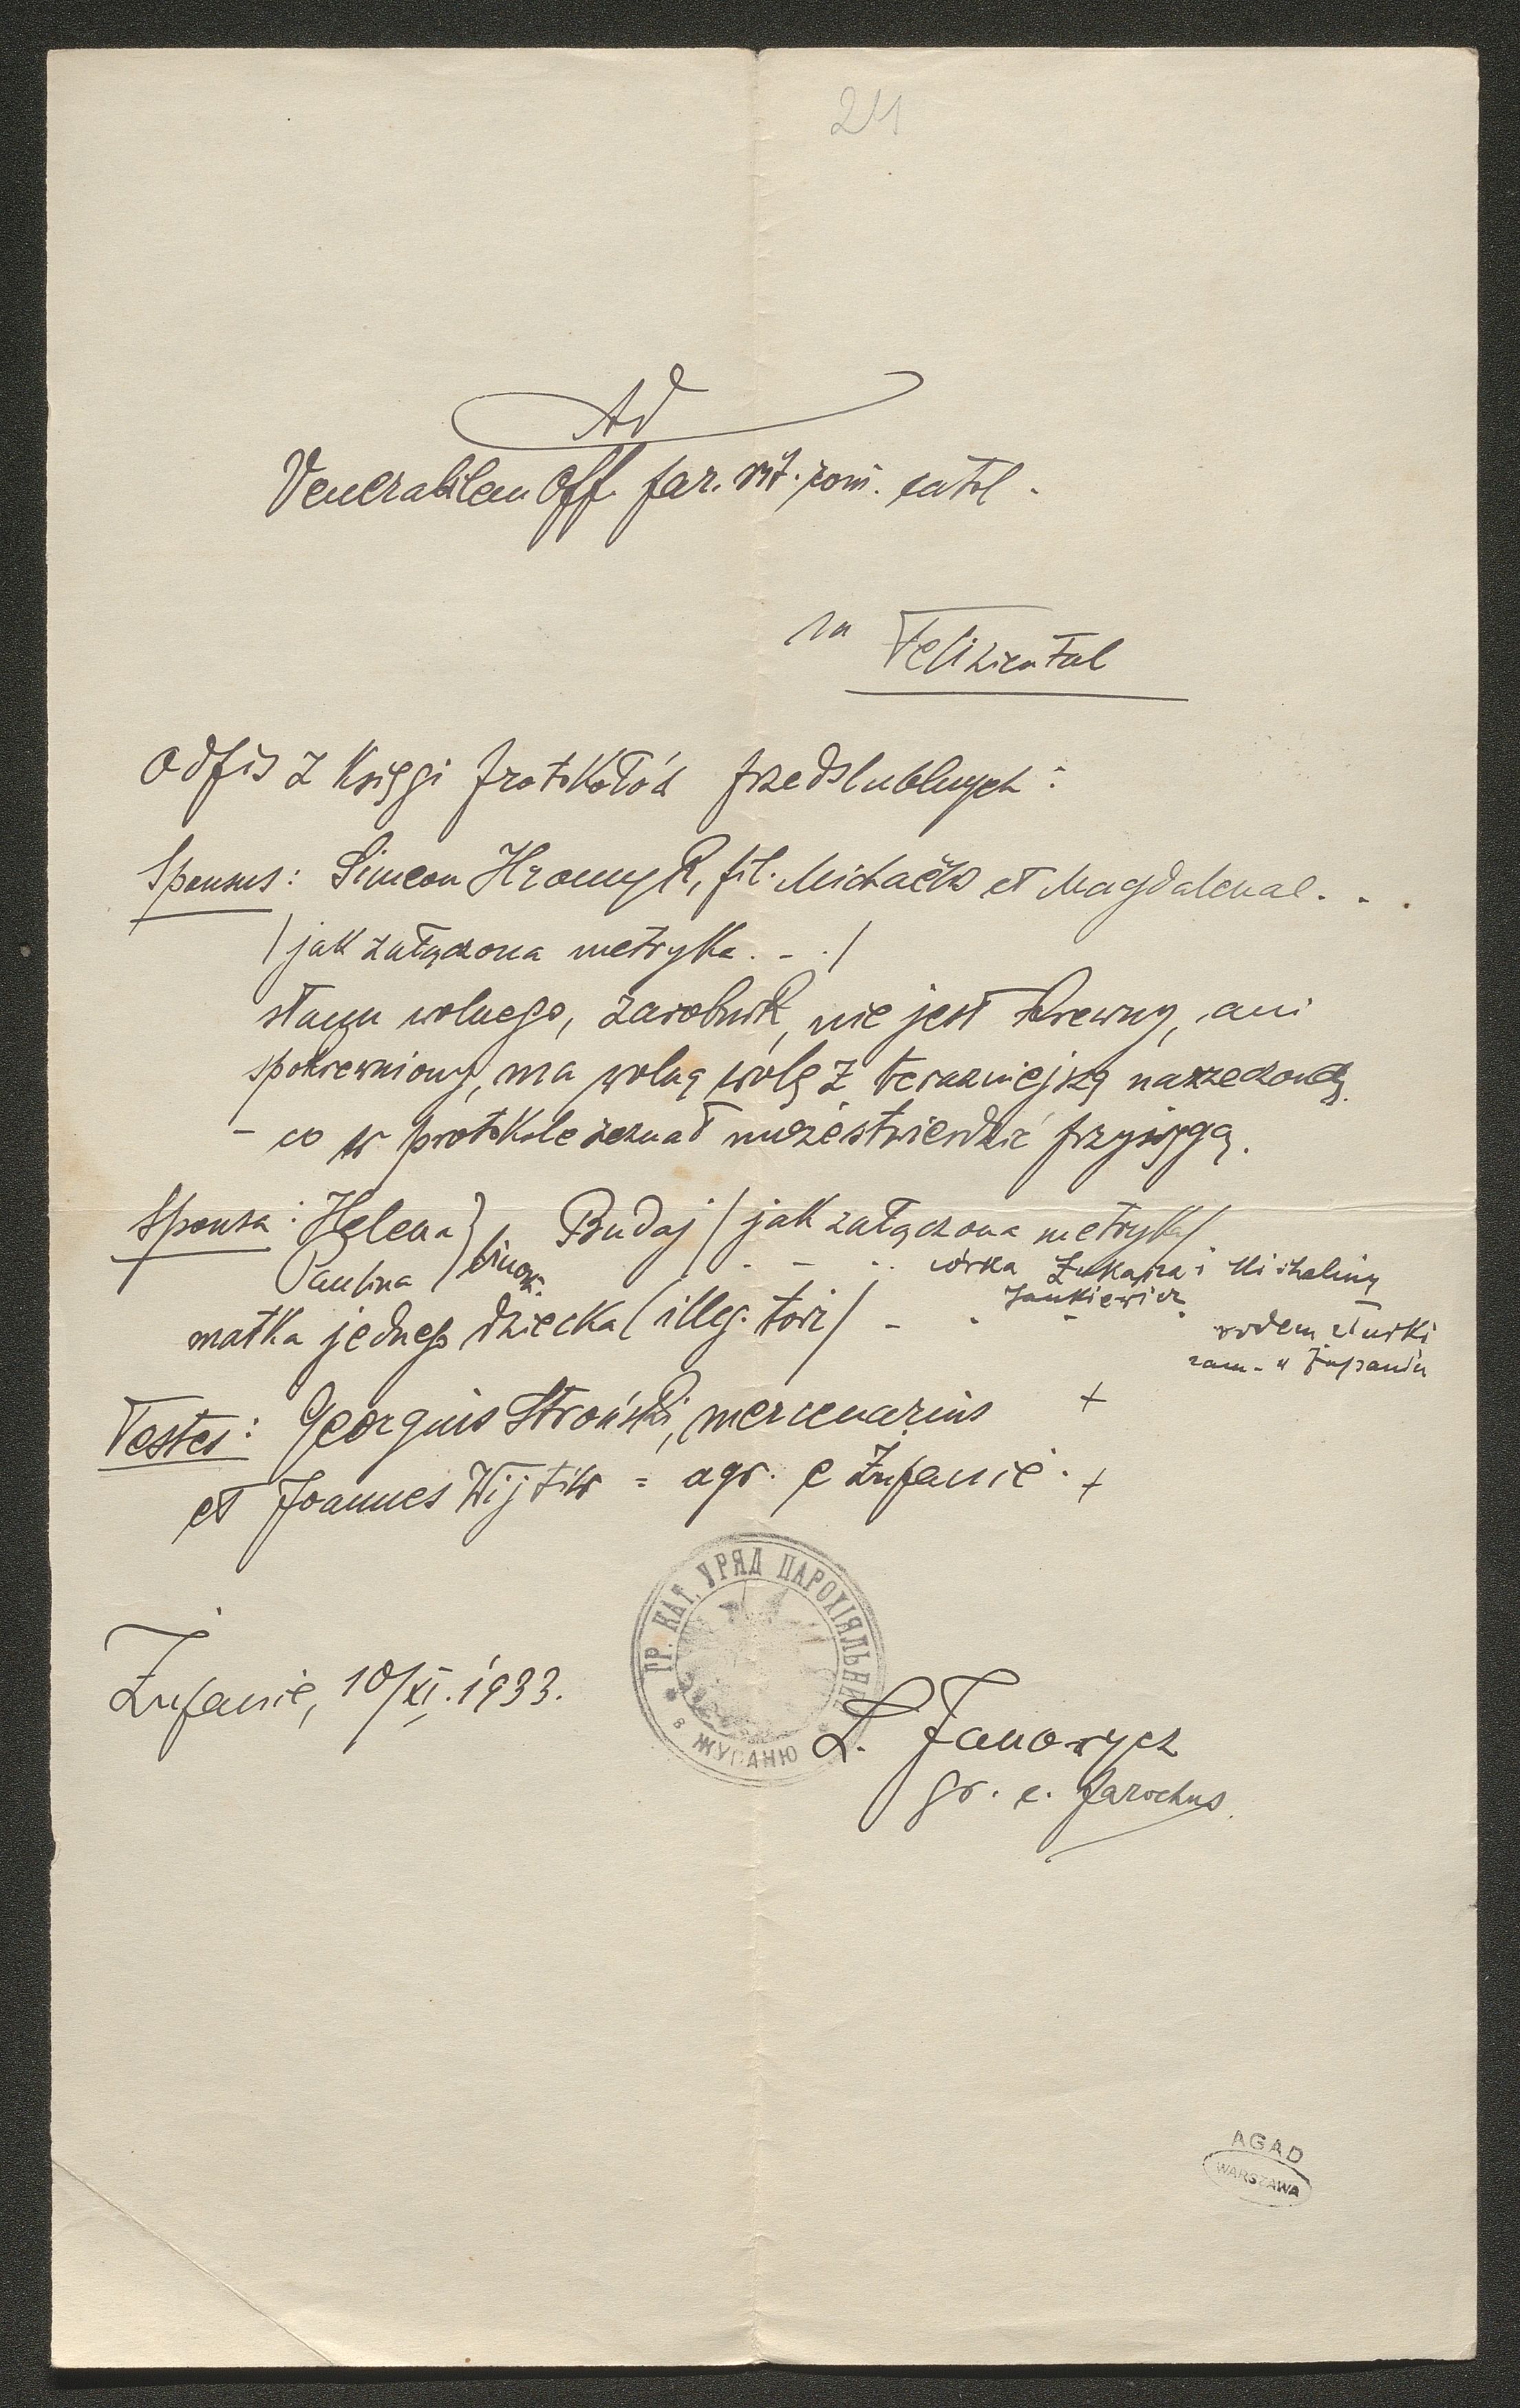 24
Ad
Venerabilem Off. par. rit. rom. catol.
in Felizienthal
Odpis z Księgi protokołów przedslubnych:
Sponsus: Simeon Hromyk, fil. Michaelis et Magdalenae...
/ jak załączona metryka . - . /
stanu wolnego, zarobnik, nie jest krewny, ani
spokrewniony, ma wolną wolę z terazniejszą narzeczoną
- co w protokole zeznał może stwierdzić przysięgą.
Sponsa: Helena } binom. Budaj / jak załączona metryka /
Paulina
córka Łukasza i Michaliny
Jankiewicz
matka jednego dziecka (illeg. tori /
rodem z Turki
zam. w Żupaniu
Testes: Georgius Stroński, mercenarius +
et Joannes Wijtiw = agr. e Żupanie. +
ГР. КАТ. УРЯД ПАРОХІЯЛЬНИЙ
в ЖУПАНЮ
Żupanie, 10/XI. 1933.
L. Janowycz
gr. c. parochus
AGAD
WARSZAWA